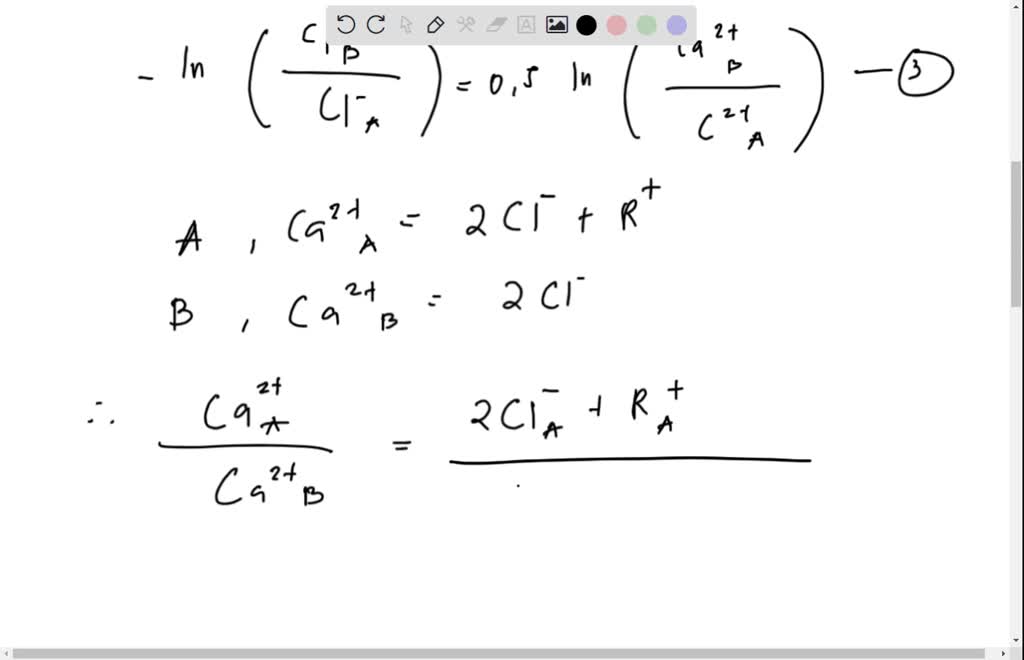 - ln (Cl B / Cl⁻ A) = 0,5 ln (Ca²⁺ B / C²⁺ A) — ③
A , Ca²⁺ A = 2 Cl⁻ + R⁺
B , Ca²⁺ B = 2 Cl⁻
∴ Ca²⁺ A / Ca²⁺ B = 2Cl⁻ A + R⁺ A